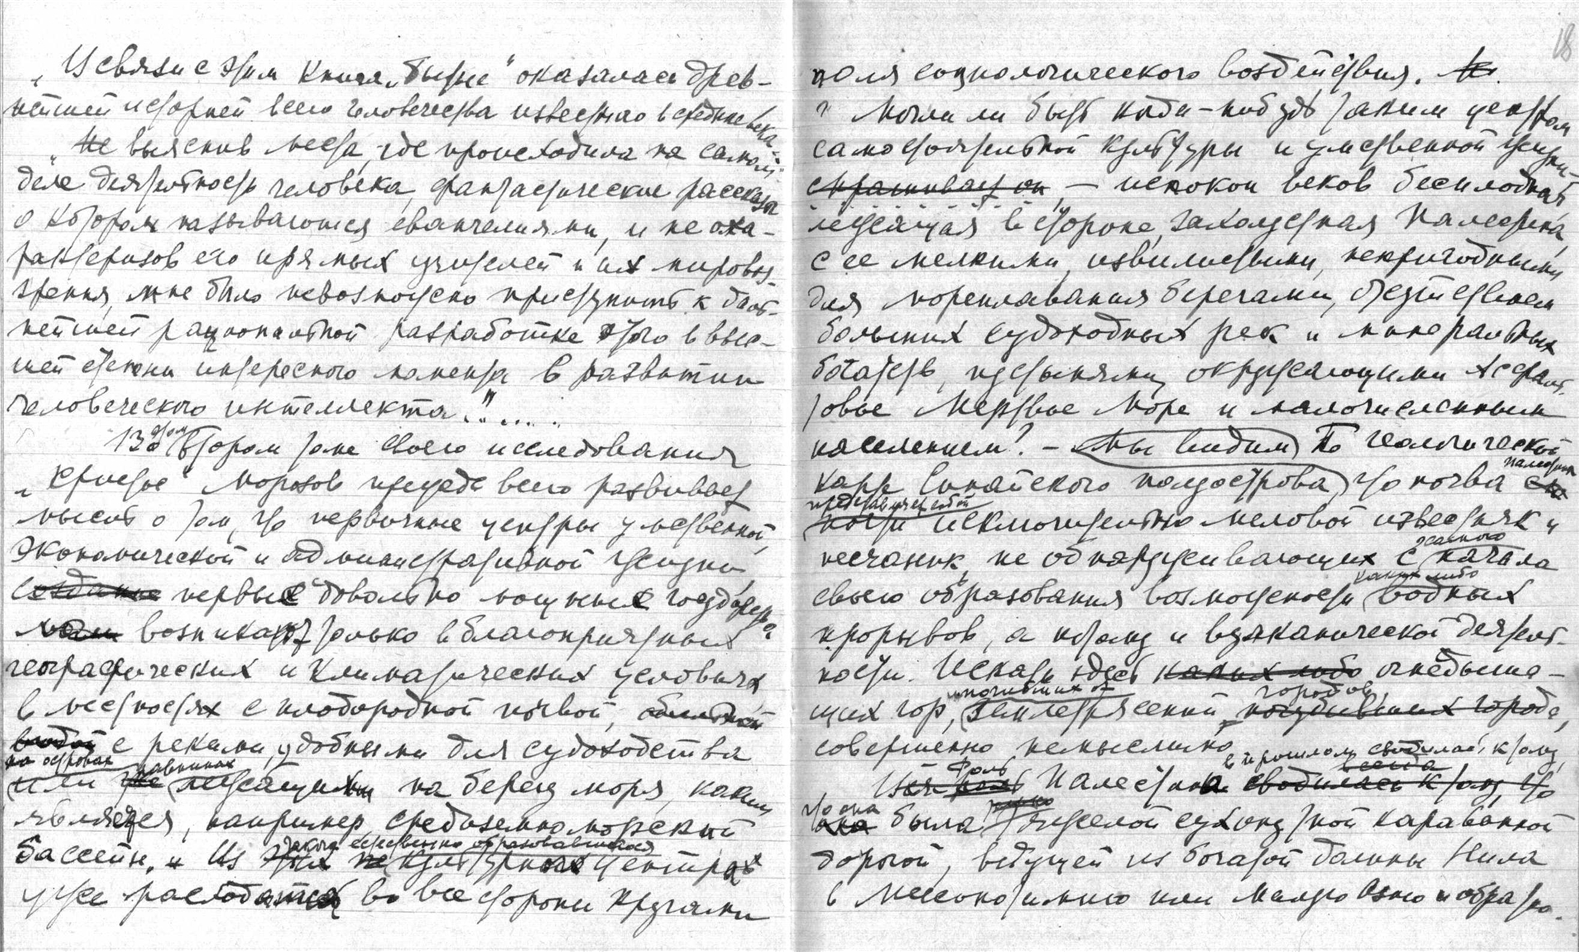 „И в связи с этим книга „Бытие" оказалась древ-
нейшей историей всего человечества известного в средние века.
Не выяснив места, где происходила на самом
деле деятельность человека, фантастические рассказы
о котором называются евангелиями, и не оха-
рактеризовав его прямых учителей и их мировоз-
зрения, мне было невозможно приступить к даль-
нейшей рациональной разработке этого в выс-
шей степени интересного момента в развитии
человеческого интеллекта."....
Во втором томе своего исследования
„Христос" Морозов прежде всего развивает
мысль о том, что первичные центры умственной,
экономической и административной жизни
создание первые довольно мощные государства
возникают только в благоприятных
географических и климатических условиях
в местностях с плодородной почвой,
с реками, удобными для судоходства
на островах равнинах
или лежащих на берегу моря, каким
является, например средиземноморский
таких естественно образовавшихся
бассейн. Из этих культурных центров
уже расходятся во все стороны кругами
18
поля социологического воздействия.
Могли ли быть когда-нибудь таким центром
самостоятельной культуры и умственной жизни-
спрашивает он, — испокон веков бесплодная
лежащая в стороне, захолустная Палестина,
с ее мелкими, извилистыми, непригодными
для мореплавания берегами, отсутствием
больших судоходных рек и минеральных
богатств, пустынями, окружающими
Мертвое море и малочисленным
населением? — Мы видим по геологической
карте Синайского полуострова, что почва
Палестины
представляет собой
почти исключительно меловой известняк и
песчаник, не обнаруживающих с начала
самого
своего образования возможности водных
каких либо
прорывов, а потому и вулканической деятель-
ности. Искать здесь каких либо огнедыша-
погибших от городов,
щих гор, землетрясений погубивших города,
совершенно немыслимо
в прошлом сводилась к тому,
роль всегда
Вся роль Палестины сводилась к тому, что
что она
она была тяжелой сухопутной караванной
дорогой, ведущей из богатой долины Нила
в Месопотамию или Малую Азию и обратно.